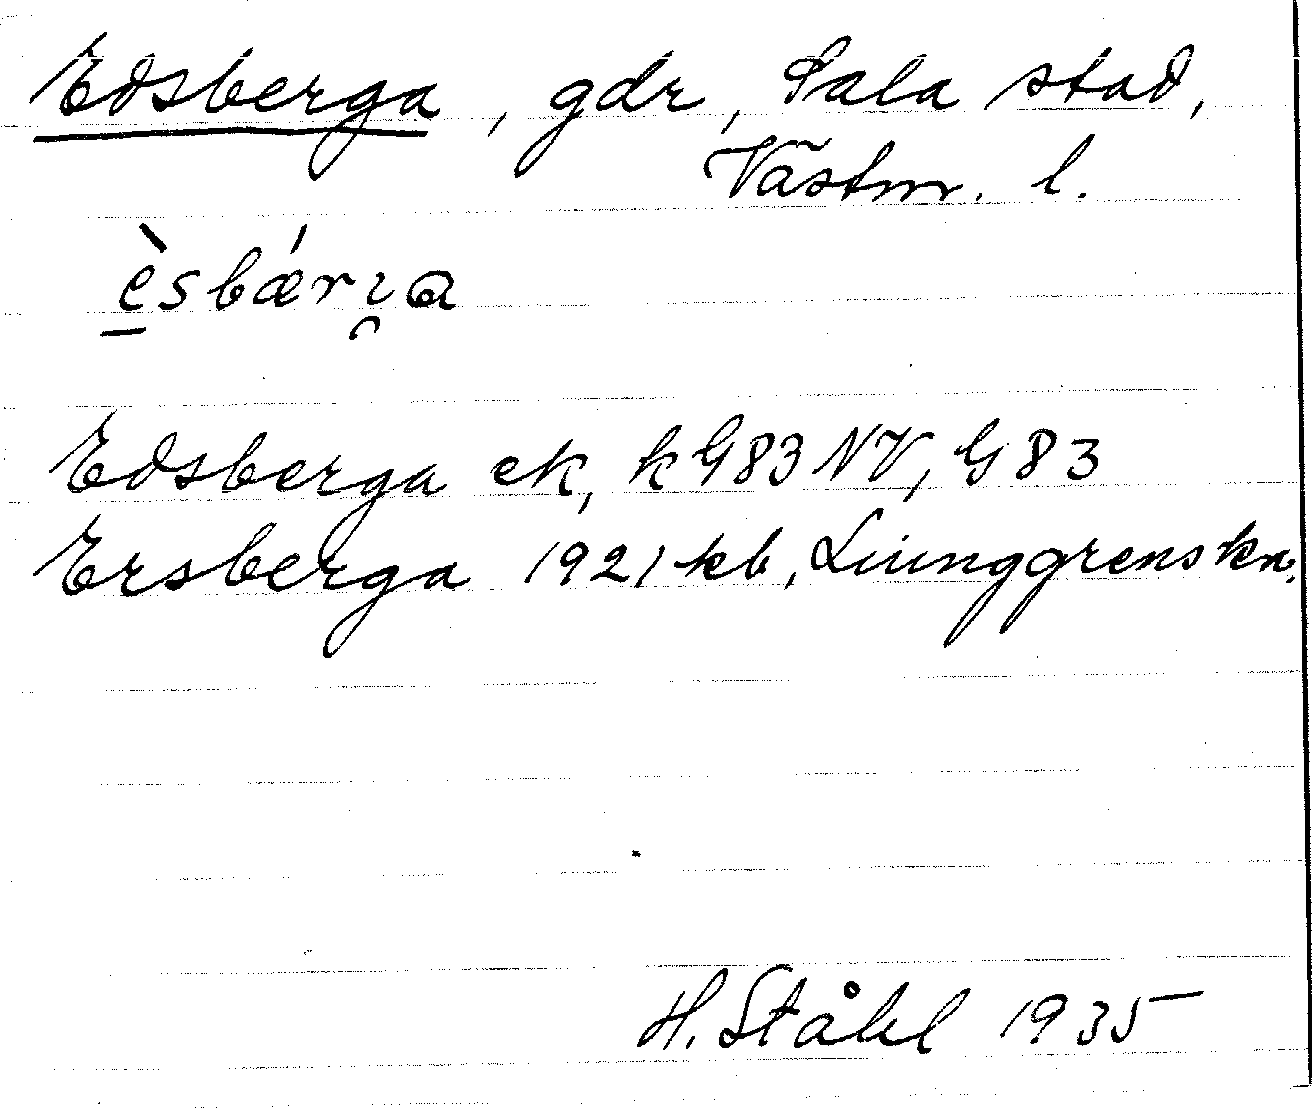 Edsberga, gdr, Sala stad,
Västm. l.
è̠sbǽrı̯a
Edsberga ek, k G83 NV, G 83
Ersberga 1921 kb, Liunggrens kn.
H. Ståhl 1935